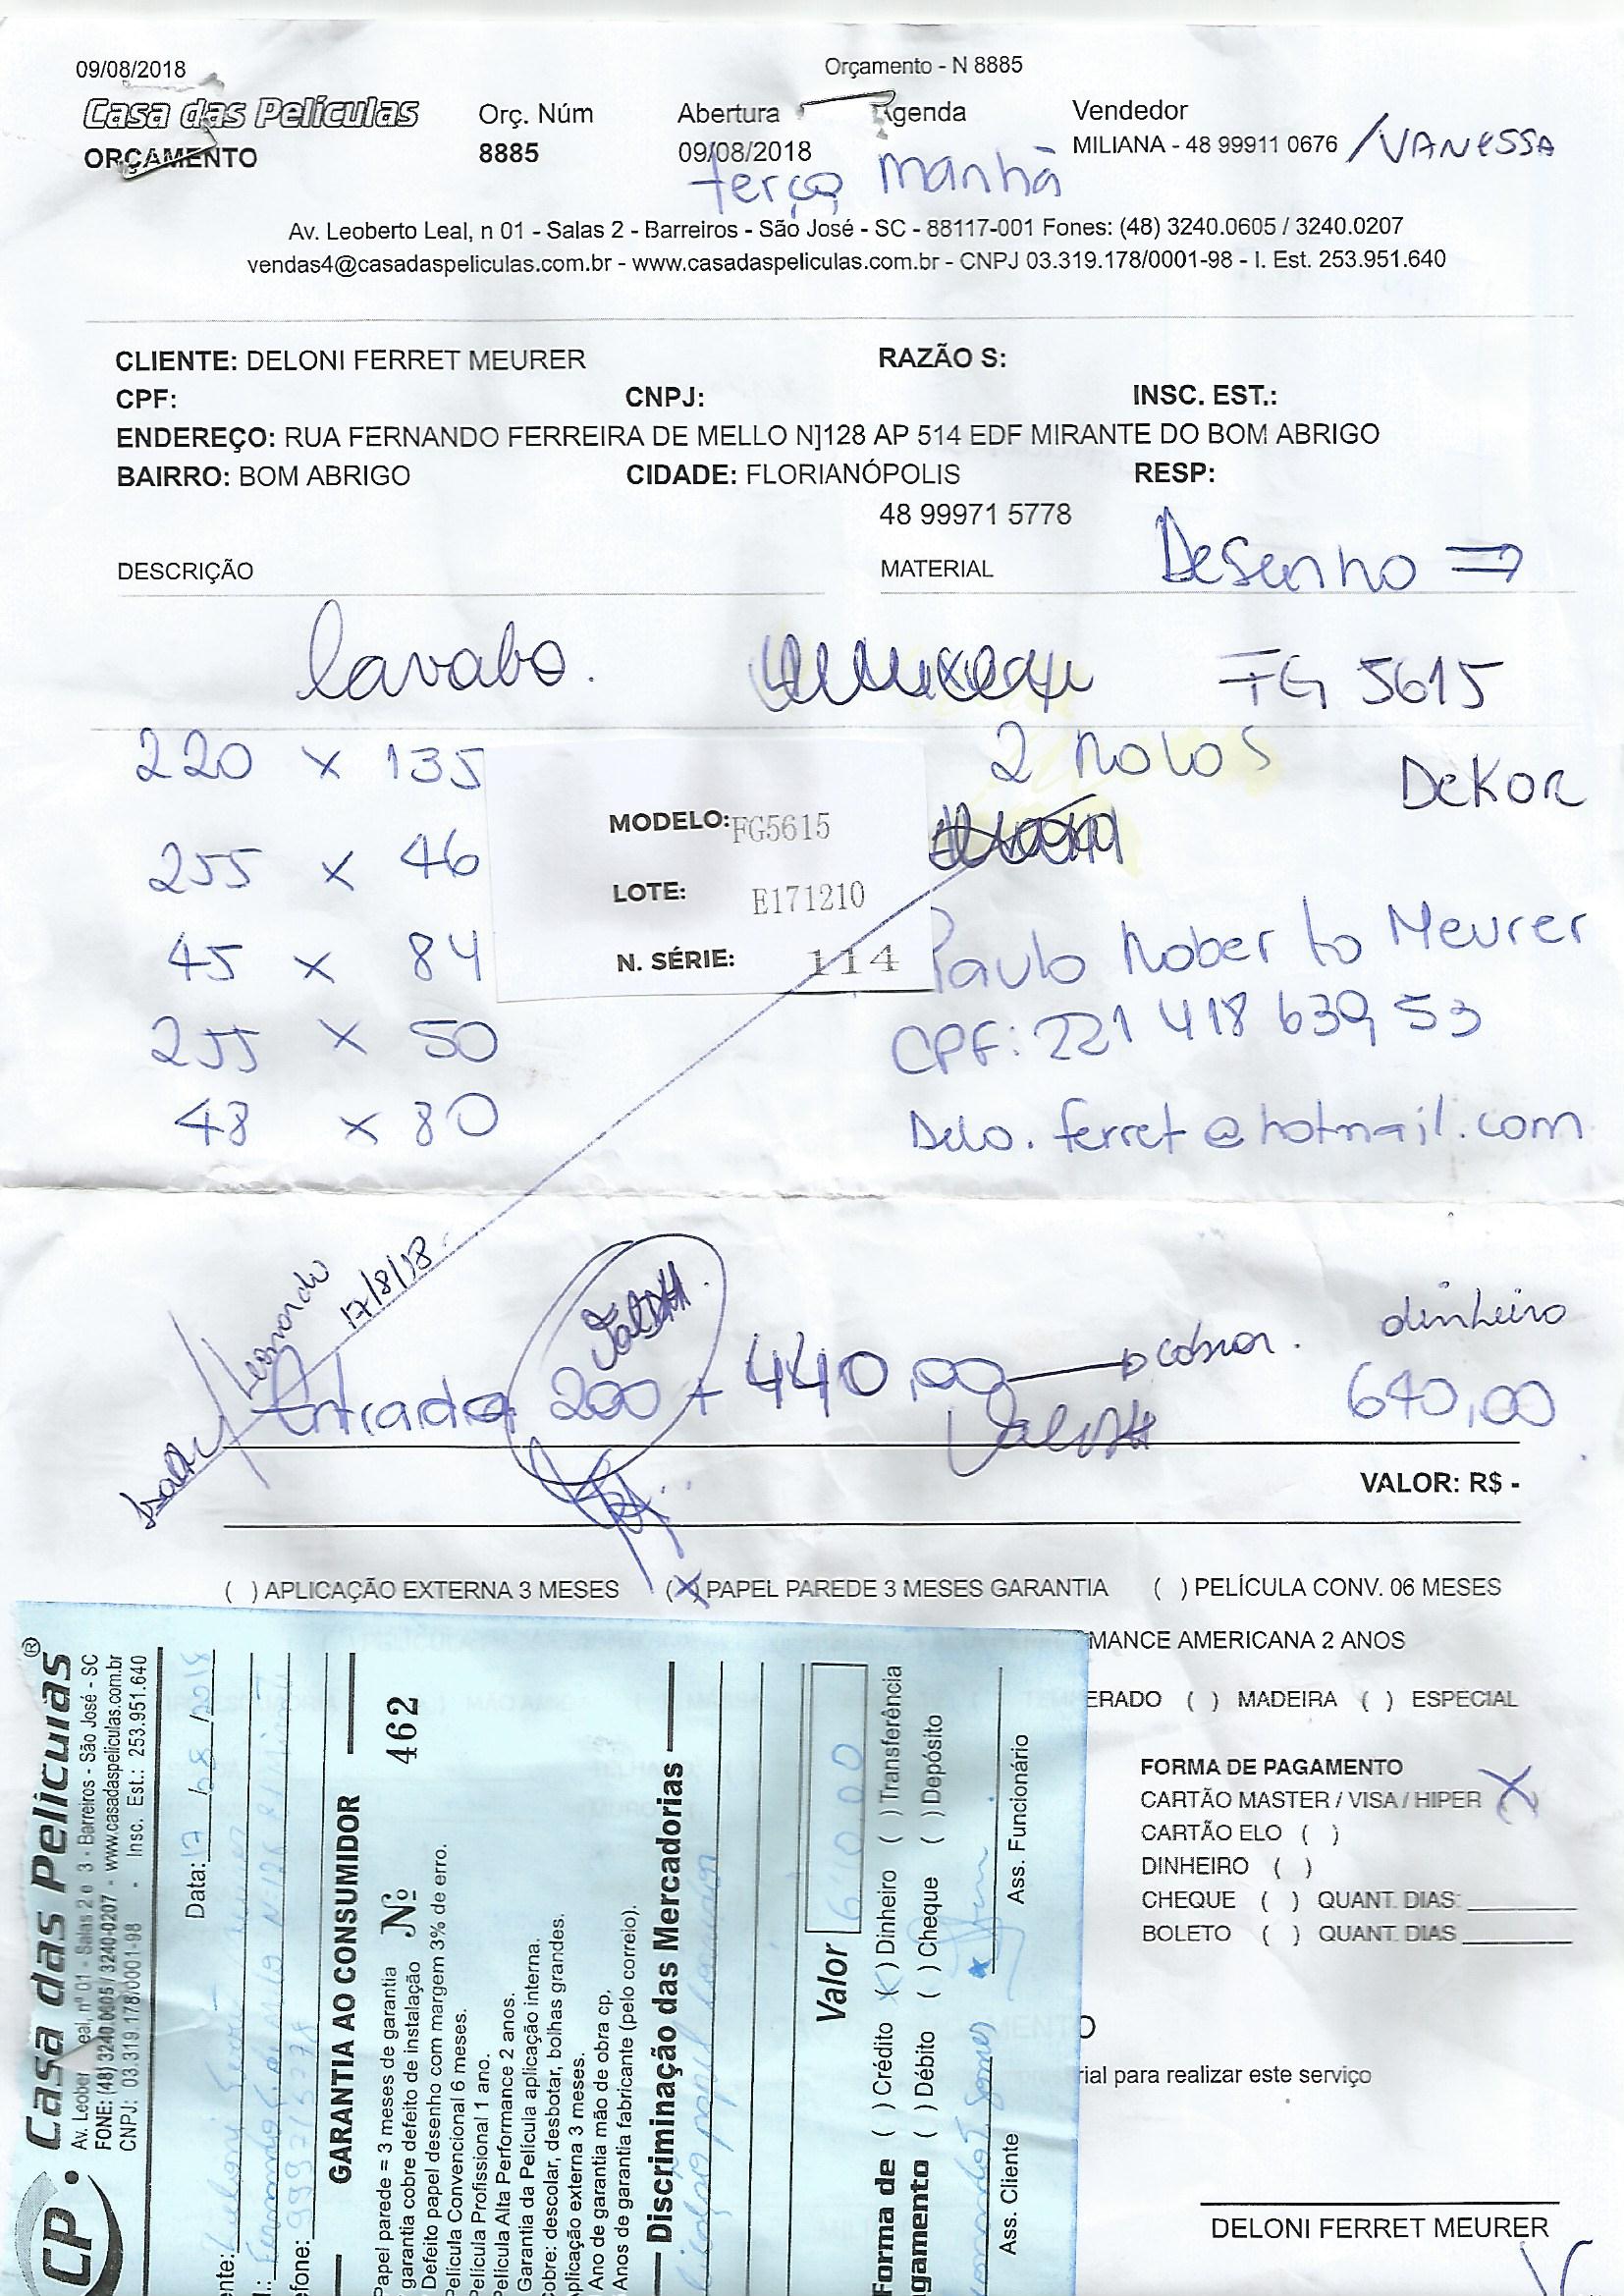 09/08/2018
Orçamento - N 8885
Casa das Películas
ORÇAMENTO
Orç. Núm
8885
Abertura
09/08/2018
Agenda
terça manhã
Vendedor
MILIANA - 48 99911 0676 /VANESSA
Av. Leoberto Leal, n 01 - Salas 2 - Barreiros - São José - SC - 88117-001 Fones: (48) 3240.0605 / 3240.0207
vendas4@casadaspeliculas.com.br - www.casadaspeliculas.com.br - CNPJ 03.319.178/0001-98 - I. Est. 253.951.640
CLIENTE: DELONI FERRET MEURER RAZÃO S:
CPF: CNPJ: INSC. EST.:
ENDEREÇO: RUA FERNANDO FERREIRA DE MELLO N]128 AP 514 EDF MIRANTE DO BOM ABRIGO
BAIRRO: BOM ABRIGO CIDADE: FLORIANÓPOLIS RESP:
48 99971 5778
DESCRIÇÃO MATERIAL Desenho ⇒
lavabo. FG 5615
220 x 135 2 Rolos DeKOR
255 x 46
45 x 84
255 x 50
48 x 80
MODELO: FG5615
LOTE: E171210
N. SÉRIE: 114
Paulo Roberto Meurer
CPF: 221 418 639 53
Delo.ferret@hotmail.com
Leonardo 17/8/18
Entrada 200 + 440,00 cobrar. dinheiro
640,00
VALOR: R$ -
( ) APLICAÇÃO EXTERNA 3 MESES (X) PAPEL PAREDE 3 MESES GARANTIA ( ) PELÍCULA CONV. 06 MESES
MANCE AMERICANA 2 ANOS
ERADO ( ) MADEIRA ( ) ESPECIAL
FORMA DE PAGAMENTO
CARTÃO MASTER / VISA / HIPER X
CARTÃO ELO ( )
DINHEIRO ( )
CHEQUE ( ) QUANT. DIAS:
BOLETO ( ) QUANT. DIAS
O
rial para realizar este serviço
DELONI FERRET MEURER
CP. Casa das Películas®
Av. Leober Leal, nº 01 - Salas 2 e 3 - Barreiros - São José - SC
FONE: (48) 3240.0605 / 3240-0207 - www.casadaspeliculas.com.br
CNPJ: 03.319.178/0001-98 - Insc. Est.: 253.951.640
Data: 17 / 08 / 2018
nte:
efone:
GARANTIA AO CONSUMIDOR
Papel parede = 3 meses de garantia
garantia cobre defeito de instalação Nº 462
Defeito papel desenho com margem 3% de erro.
Película Convencional 6 meses.
Película Profissional 1 ano.
Película Alta Performance 2 anos.
Garantia da Película aplicação interna.
obre: descolar, desbotar, bolhas grandes.
plicação externa 3 meses.
Ano de garantia mão de obra cp,
Anos de garantia fabricante (pelo correio).
Discriminação das Mercadorias
Valor 640,00
Forma de ( ) Crédito (X) Dinheiro ( ) Transferência
gamento ( ) Débito ( ) Cheque ( ) Depósito
Ass. Cliente Ass. Funcionário